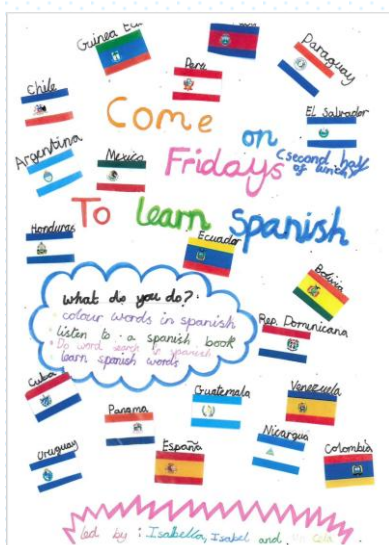 Guinea Ecu
Paraguay
Perú
Chile
El Salvador
Come on
Fridays (second half
of lunch)
Argentina
Mexico
To learn Spanish
Honduras
Ecuador
Bolivia
what do you do?
colour words in spanish
listen to a spanish book
Do word search in spanish
learn spanish words
Rep. Dominicana
Cuba
Guatemala
Venezuela
Panama
Nicargua
España
Uruguay
Colombia
led by : Isabella, Isabel and